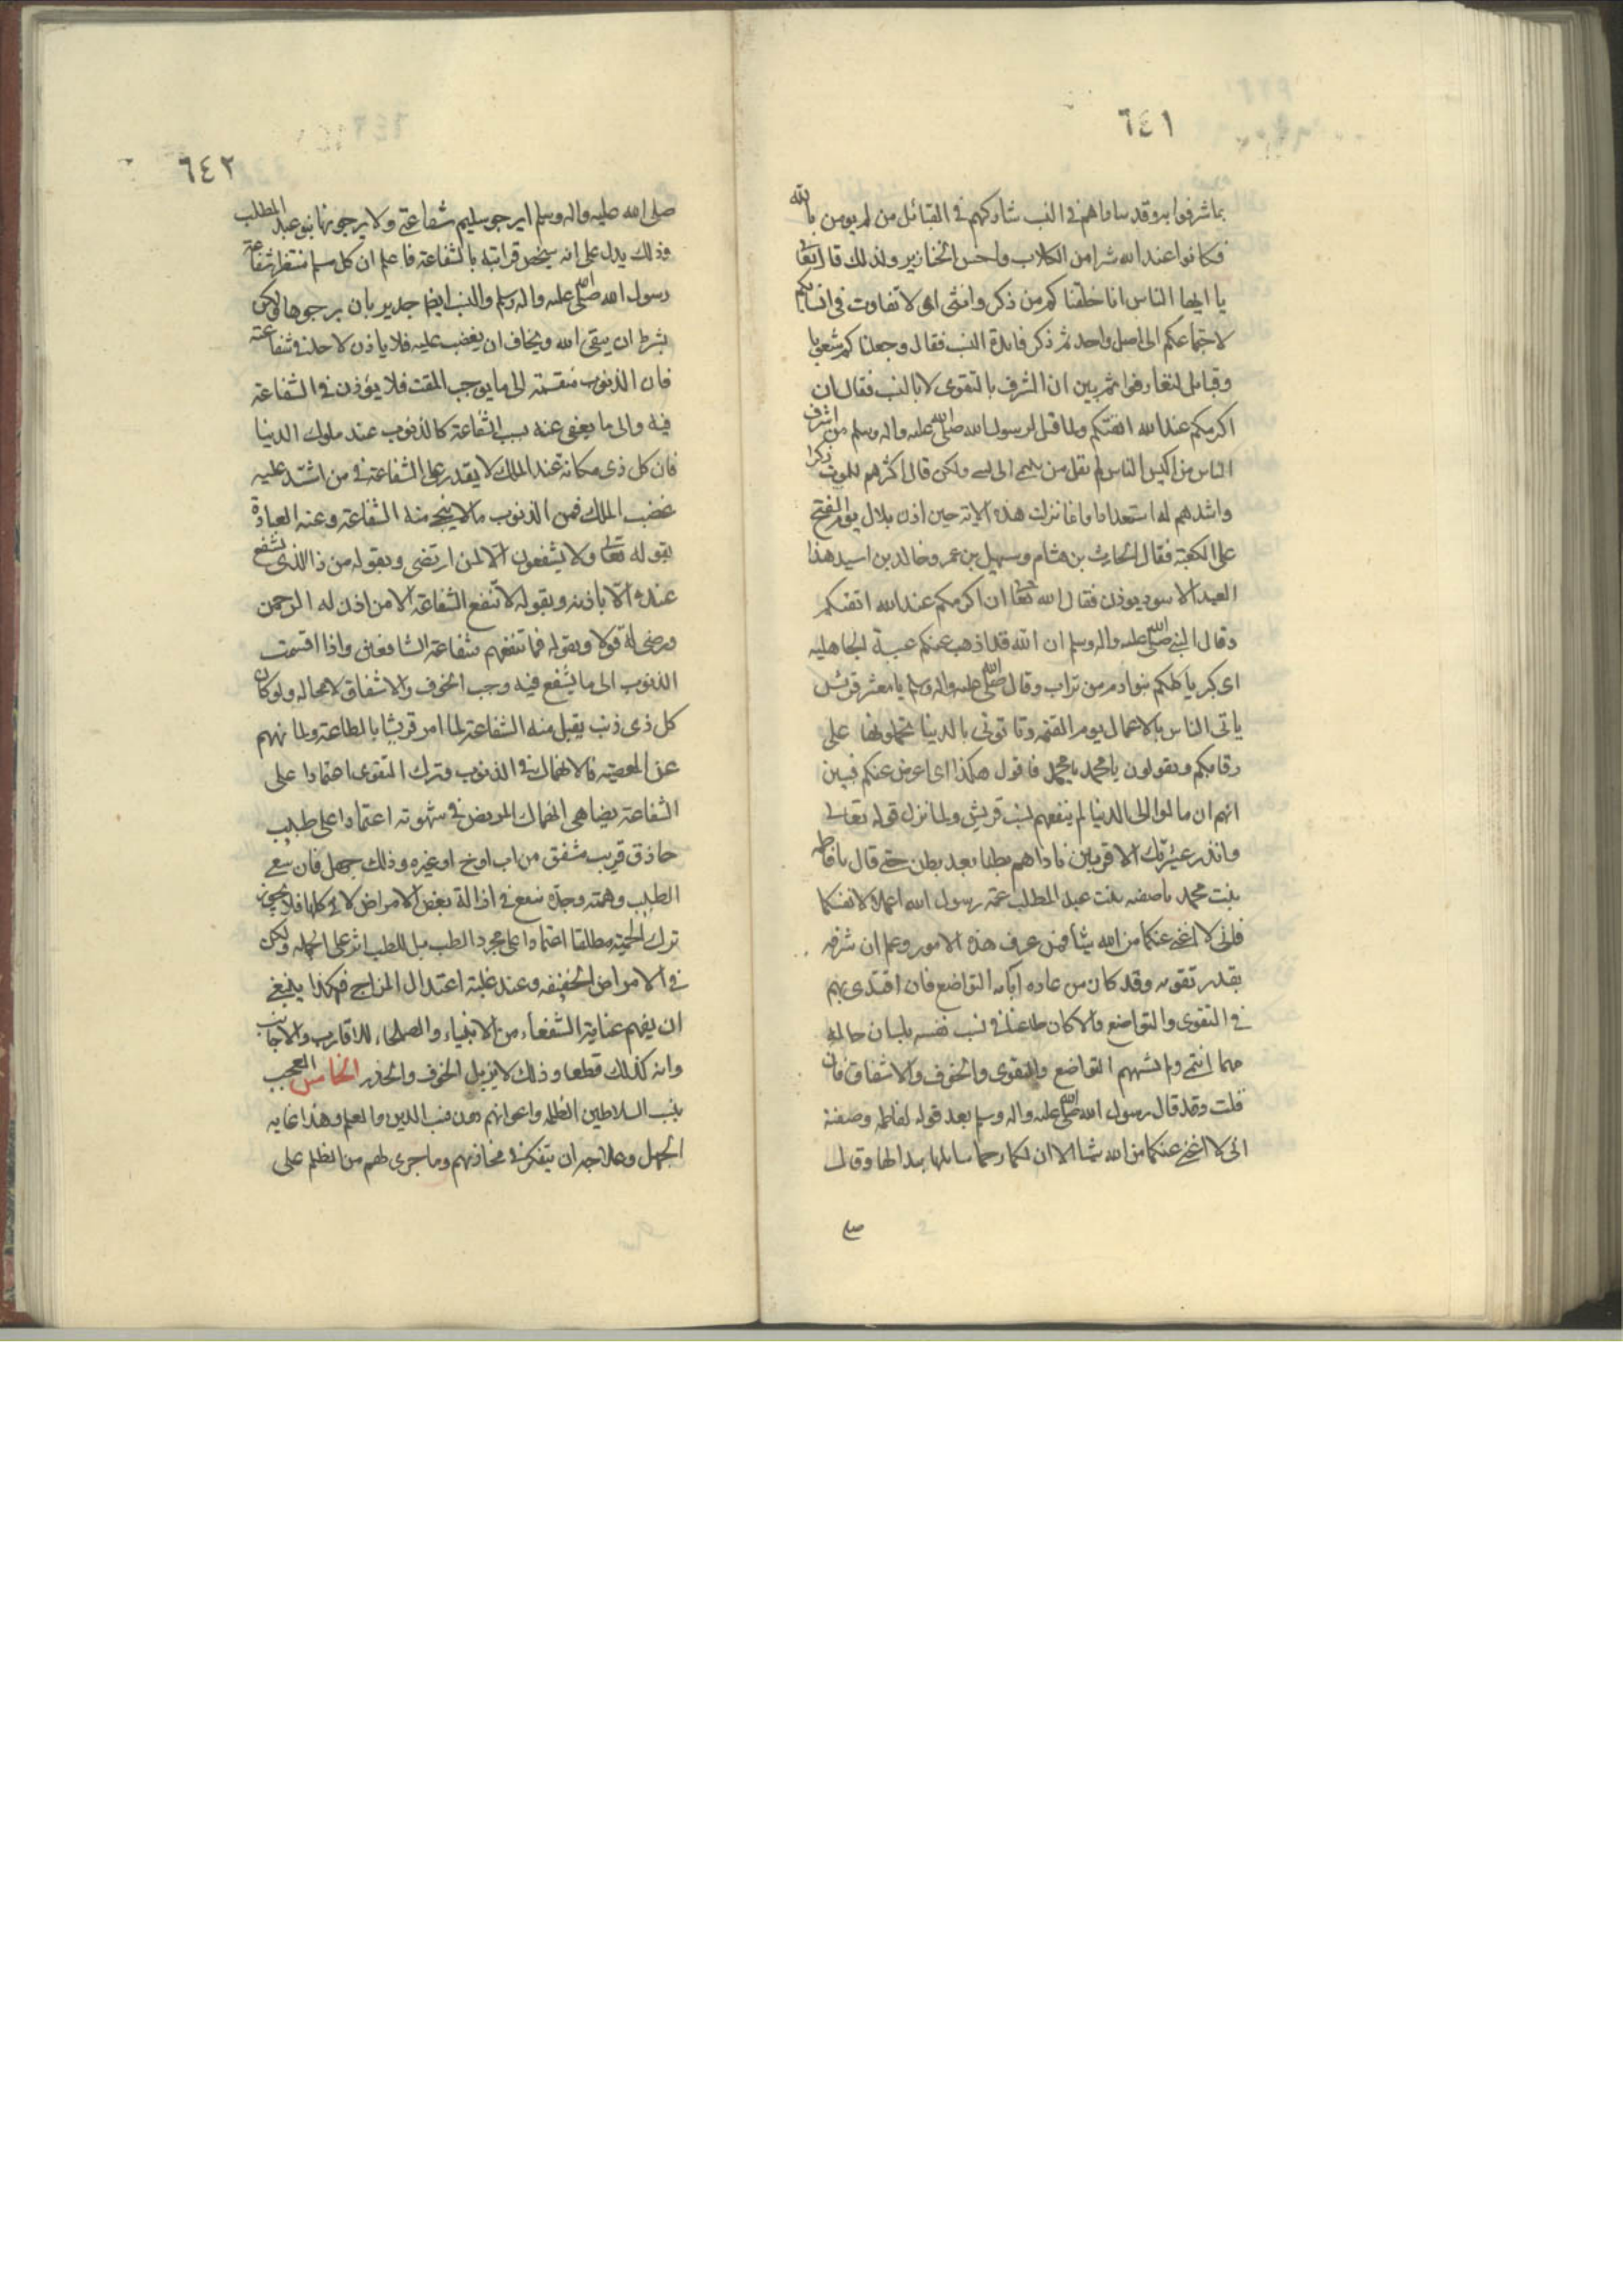 ٦٤١
بما شرفوا به وقد ساواهم في النسب شاركهم في القبائل من لم يومن بالله
فكانوا عند الله شرا من الكلاب واخس الخنازير ولذلك قال تعالى
يا ايها الناس انا خلقناكم من ذكر وانثى اى لا تفاوت في انسابكم
لاجتماعكم الى اصل واحد ثم ذكر فايدة النسب فقال وجعلناكم شعوبا
وقبائل لتعارفوا ثم بين ان الشرف بالتقوى لا بالنسب فقال ان
اكرمكم عند الله اتقيكم ولما قيل لرسول الله صلى الله عليه واله وسلم من اشرف
الناس من اكيس الناس لم يقل من ينتمى الى نسبى ولكن قال اكثرهم للموت ذكرا
واشدهم له استعدادا وانما نزلت هذه الاية حين اذن بلال يوم الفتح
على الكعبة فقال الحارث بن هشام وسهيل بن عمر وخالد بن اسيد هذا
العبد الاسود يوذن فقال الله تعالى ان اكرمكم عند الله اتقيكم
وقال النبى صلى الله عليه واله وسلم ان الله قد اذهب عنكم عبية الجاهلية
اى كبرياء كلكم بنو ادم وادم من تراب وقال صلى الله عليه واله وسلم يا معشر قريش
ياتى الناس بالاعمال يوم القيمة وتاتونى بالدنيا تحملونها على
رقابكم وتقولون يا محمد يا محمد فاقول هكذا اى اعرض عنكم فبين
انهم ان مالوا الى الدنيا لم ينفعهم نسب قريش ولما نزل قوله تعالى
وانذر عشيرتك الاقربين ناداهم بطنا بعد بطن حتى قال يا فاطمه
بنت محمد يا صفيه بنت عبد المطلب عمة رسول الله اعملا لانفسكما
فانى لا اغنى عنكما من الله شيئا فمن عرف هذه الامور وعلم ان شرفه
بقدر تقويه وقد كان من عادة آبائه التواضع فان اقتدى بهم
في التقوى والتواضع والا كان طاعنا في نسب نفسه بلسان حاله
مهما انتمى ولم يشبههم التواضع والتقوى والخوف والاشفاق فان
قلت وقد قال رسول الله صلى الله عليه واله وسلم بعد قوله لفاطمه وصفية
انى لا اغنى عنكما من الله شيئا الا ان لكما رحما سابلها ببلالها وقال
صلى
٦٤٢
صلى الله عليه واله وسلم ايرجو سليم شفاعتى ولا يرجونها بنو عبد المطلب
وذلك يدل على انه سيخص قرابته بالشفاعة فاعلم ان كل مسلم منتظر شفاعة
رسول الله صلى الله عليه واله وسلم والنسب ايضا جدير بان يرجوها لكن
بشرط ان يتقى الله ويخاف ان يغضب عليه فلا ياذن لاحد في شفاعته
فان الذنوب منقسمة الى ما يوجب المقت فلا يؤذن في الشفاعة
فيه والى ما يعفى عنه بسبب الشفاعة كالذنوب عند ملوك الدنيا
فان كل ذى مكانة عند الملك لا يقدر على الشفاعة في من اشتد عليه
غضب الملك فمن الذنوب ما لا ينجى منه الشفاعة وعنه العبارة
بقوله تعالى ولا يشفعون الا لمن ارتضى وبقوله من ذا الذى يشفع
عنده الا باذنه وبقوله لا تنفع الشفاعة الا من اذن له الرحمن
ورضى له قولا وبقوله فما تنفعهم شفاعة الشافعين واذا اقسمت
الذنوب الى ما يشفع فيه وجب الخوف والاشفاق لا محاله ولو كان
كل ذى ذنب يقبل منه الشفاعة لما امر قريشا بالطاعة ولما نهيهم
عن المعصية فالانهماك في الذنوب وترك التقوى اعتمادا على
الشفاعة يضاهى انهماك المريض في شهوته اعتمادا على طبيب
حاذق قريب مشفق من اب او اخ او غيره وذلك جهل فان سعى
الطبيب وهمته وجده ينفع في ازالة بعض الامراض لا في كلها فلا يجوز
ترك الحمية مطلقا اعتمادا على مجرد الطب بل للطب اثر على الجمله ولكن
في الامراض الخفيفه وعند غلبة اعتدال المزاج فهكذا ينبغى
ان يفهم عناية الشفعاء من الانبياء والصلحاء للاقارب والاجانب
وانه كذلك قطعا وذلك لا يزيل الخوف والحذر الخامس العجب
بنسب السلاطين الظلمه واعوانهم دون نسب الدين والعلم وهذا غايه
الجهل وعلاجه ان يتفكر في مخازيهم وما جرى لهم من الظلم على